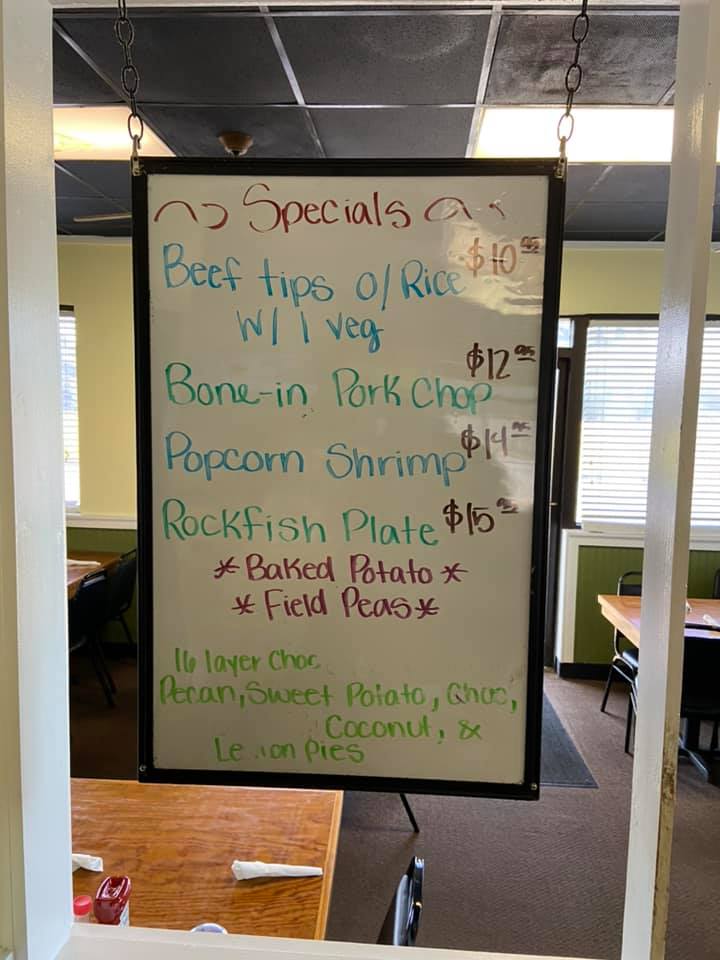 Specials
Beef tips o/ Rice $10.95
W/ 1 veg
Bone-in Pork Chop $12.95
Popcorn Shrimp $14.95
Rockfish Plate $15.95
* Baked Potato *
* Field Peas *
16 layer Choc
Pecan, Sweet Potato, Choc,
Coconut, &
Lemon Pies